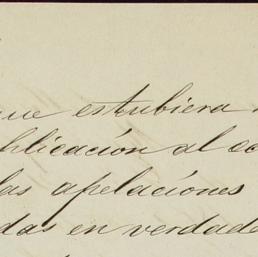 que estubiera
blicación al
las apelaciones
das en verdade